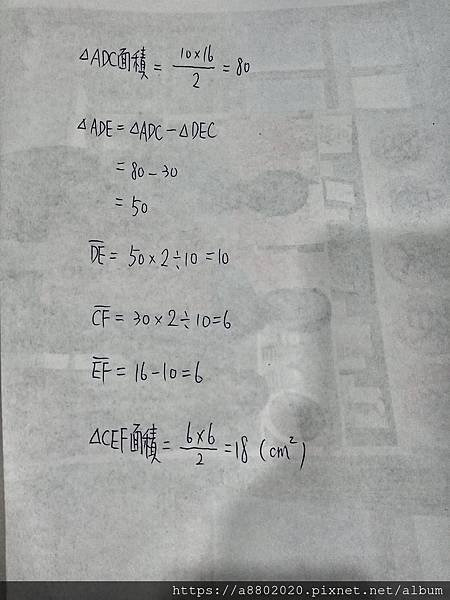 △ADC面積 = 10×16/2 = 80
△ADE = △ADC - △DEC
= 80 - 30
= 50
D̅E̅ = 50×2÷10 = 10
C̅F̅ = 30×2÷10 = 6
E̅F̅ = 16-10 = 6
△CEF面積 = 6×6/2 = 18 (cm²)
https://a8802020.pixnet.net/album